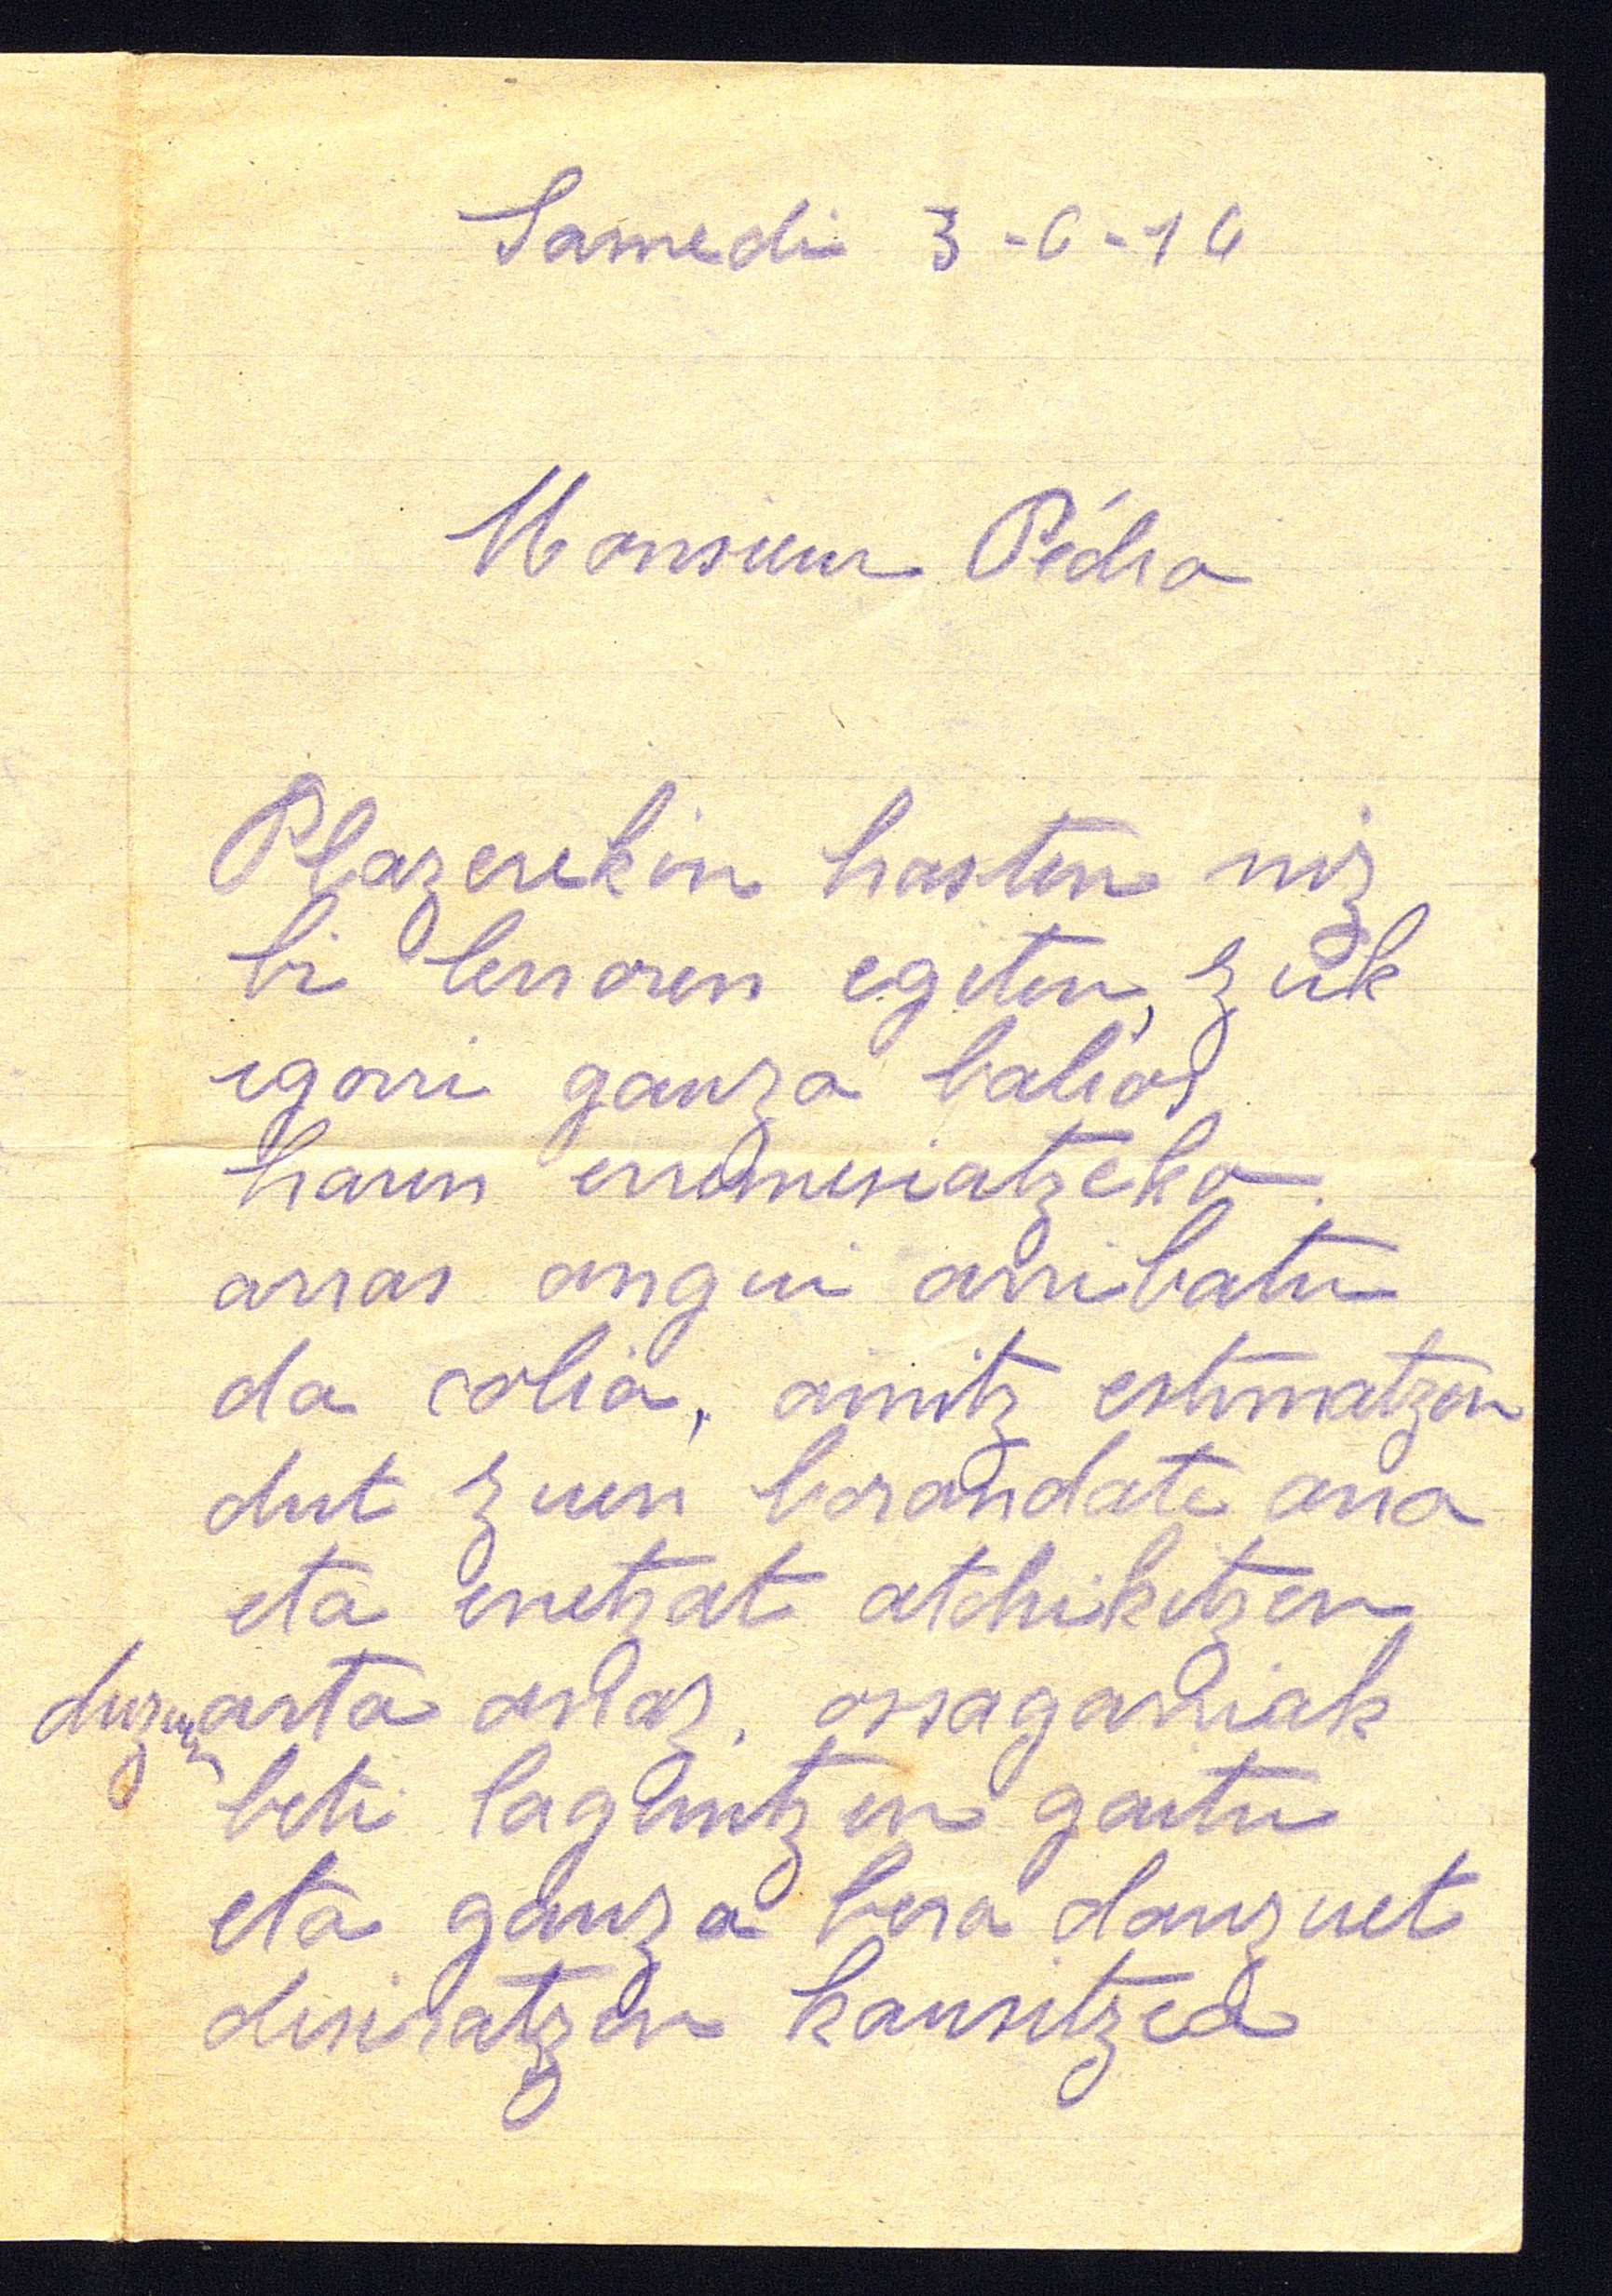 Samedi 3-6-16
Monsieur Pédro
Plazerekin hasten niz
bi lerroren egiten, zuk
egorri gauza balios
haren erremesiatzeko.
arras ongui arribatu
da colia, ainitz estimatzen
dut zuen borondate ona
eta enetzat atchikitzen
duzuen arta ortaz. ossagarriak
beti laguntzen gaitu
eta gauza bera dauzuet
desiratzen kausitzea